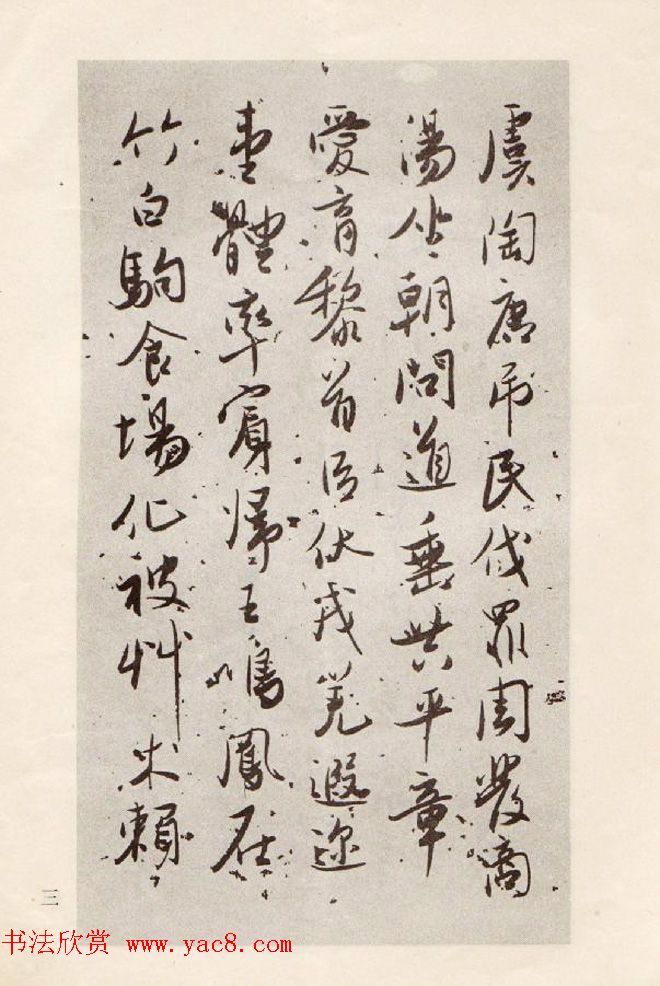 虞陶唐弔民伐罪周發商
湯坐朝問道垂共平章
愛育黎首臣伏戎羌遐迩
壹體率賓歸王鳴鳳在
竹白駒食場化被草木賴
三
书法欣赏 www.yac8.com